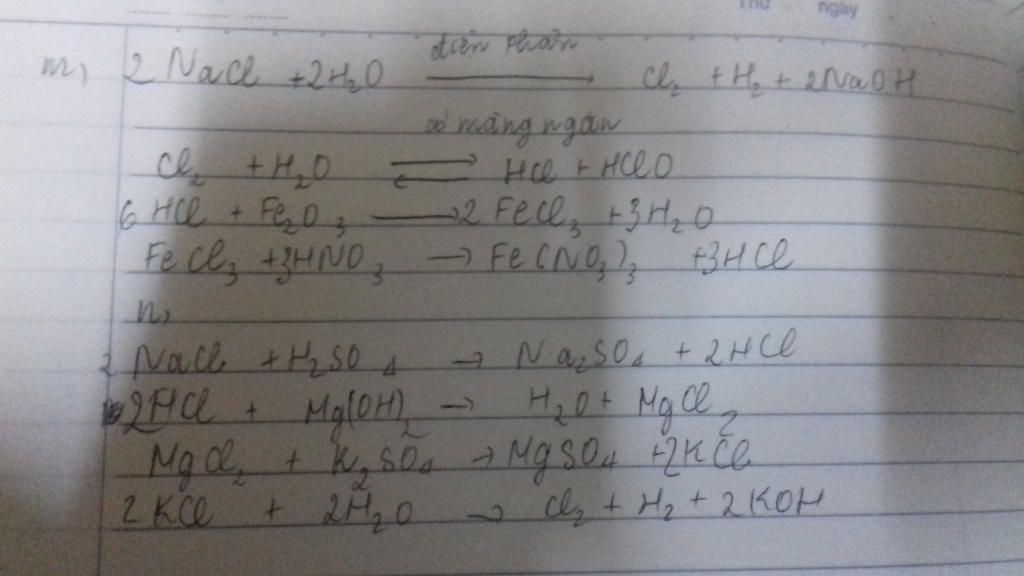 Thứ ngày
m, 2 NaCl + 2H₂O điện phân ⟶ Cl₂ + H₂ + 2NaOH
có màng ngăn
Cl₂ + H₂O ⇌ HCl + HClO
6 HCl + Fe₂O₃ ⟶ 2 FeCl₃ + 3H₂O
FeCl₃ + 3HNO₃ → Fe(NO₃)₃ + 3HCl
n,
2 NaCl + H₂SO₄ → Na₂SO₄ + 2HCl
2HCl + Mg(OH)₂ → H₂O + MgCl₂
MgCl₂ + K₂SO₄ → MgSO₄ + 2KCl
2 KCl + 2H₂O → Cl₂ + H₂ + 2KOH